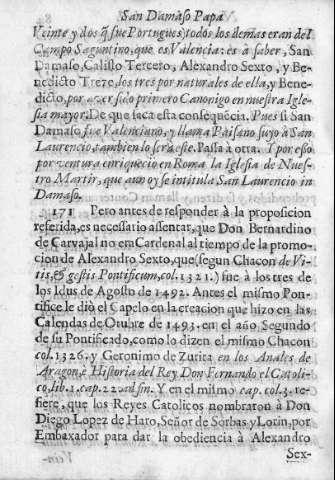 San Damaso Papa
Veinte y dos q̃ fue Portugues) todos los demas eran del
Campo Saguntino, que es Valencia: es à saber, San
Damaso, Calisto Tercero, Alexandro Sexto, y Be-
nedicto Treze, los tres por naturales de ella, y Bene-
dicto, por aver sido primero Canonigo en nuestra Igle-
sia mayor. De que saca esta conseqẽcia. Pues si San
Damaso fue Valenciano, y llama Paisano suyo à San
Laurencio, tambien lo serà este. Passa à otra. Y por esso
por ventura enriqueciò en Roma la Iglesia de Nues-
tro Martir, que aun oy se intitula San Laurencio in
Damaso.
171 Pero antes de responder à la proposicion
referida, es necessario assentar, que Don Bernardino
de Carvajal no era Cardenal al tiempo de la promo-
cion de Alexandro Sexto, que (segun Chacon de Vi-
tis, & gestis Pontificum, col. 1321.) fue à los tres de
los Idus de Agosto de 1492. Antes el mismo Pon-
tifice le diò el Capelo en la creacion que hizo en las
Calendas de Otubre de 1493. en el año Segundo
de su Pontificado, como lo dizen el mismo Chacon
col. 1326. y Geronimo de Zurita en los Anales de
Aragon, è Historia del Rey Don Fernando el Catoli-
co, lib. 1. cap. 22. ad fin. Y en el mismo cap. col. 3. re-
fiere, que los Reyes Catolicos nombraron à Don
Diego Lopez de Haro, Señor de Sorbas y Lorin, por
Embaxador para dar la obediencia à Alexandro
Sex-